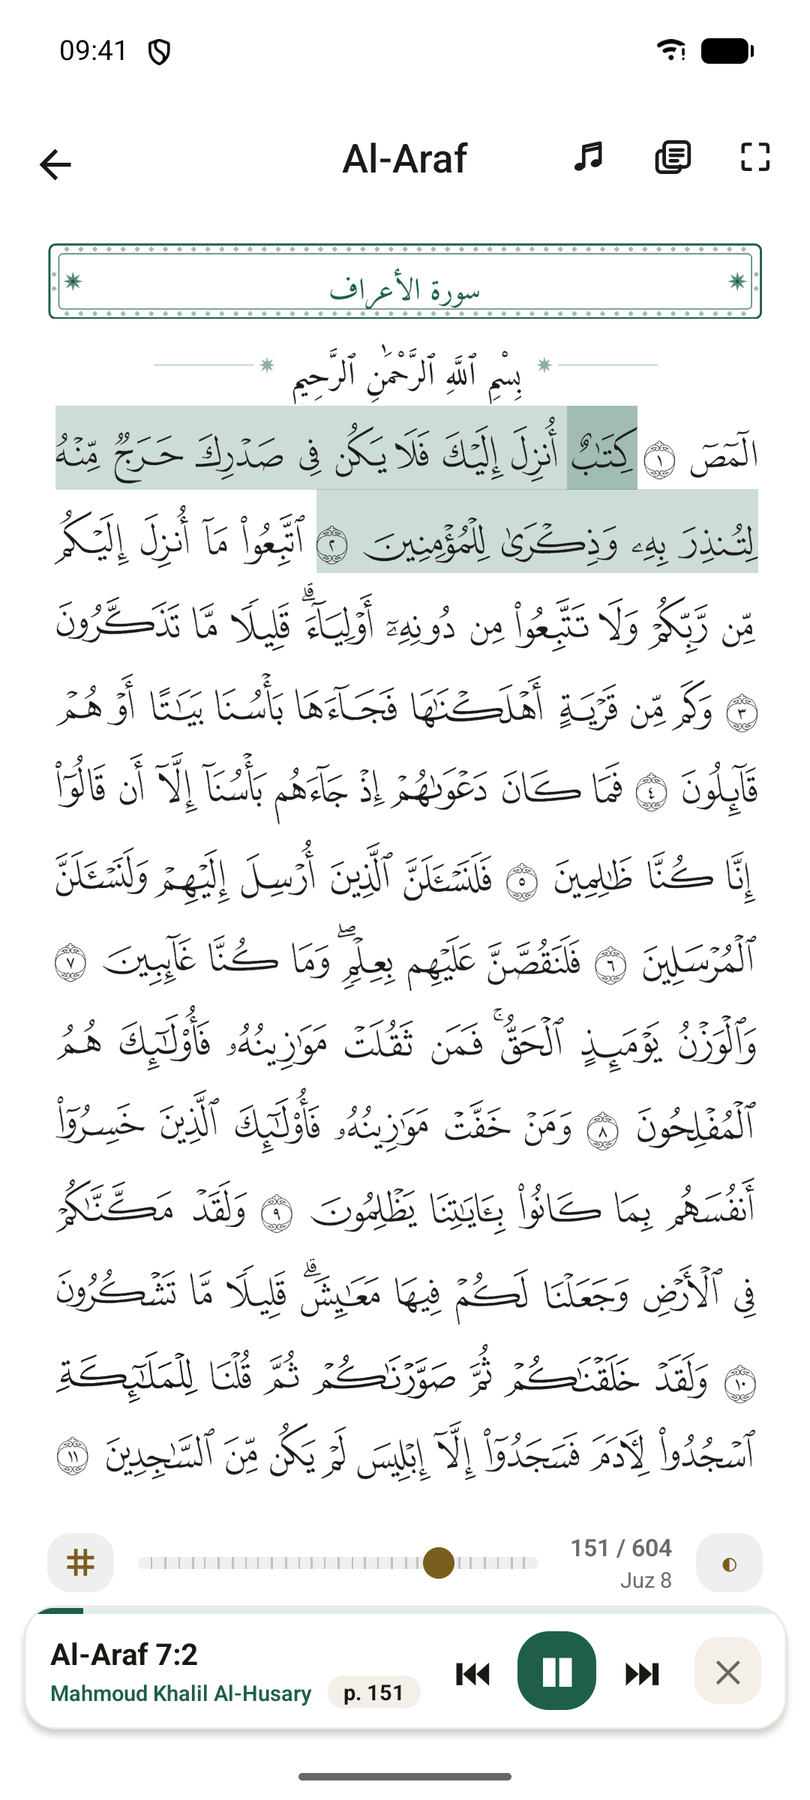 09:41
Al-Araf
سورة الأعراف
بِسْمِ ٱللَّهِ ٱلرَّحْمَٰنِ ٱلرَّحِيمِ
الٓمٓصٓ ١ كِتَٰبٌ أُنزِلَ إِلَيْكَ فَلَا يَكُن فِى صَدْرِكَ حَرَجٌ مِّنْهُ
لِتُنذِرَ بِهِۦ وَذِكْرَىٰ لِلْمُؤْمِنِينَ ٢ ٱتَّبِعُوا۟ مَآ أُنزِلَ إِلَيْكُم
مِّن رَّبِّكُمْ وَلَا تَتَّبِعُوا۟ مِن دُونِهِۦٓ أَوْلِيَآءَ ۗ قَلِيلًا مَّا تَذَكَّرُونَ
٣ وَكَم مِّن قَرْيَةٍ أَهْلَكْنَٰهَا فَجَآءَهَا بَأْسُنَا بَيَٰتًا أَوْ هُمْ
قَآئِلُونَ ٤ فَمَا كَانَ دَعْوَىٰهُمْ إِذْ جَآءَهُم بَأْسُنَآ إِلَّآ أَن قَالُوٓا۟
إِنَّا كُنَّا ظَٰلِمِينَ ٥ فَلَنَسْـَٔلَنَّ ٱلَّذِينَ أُرْسِلَ إِلَيْهِمْ وَلَنَسْـَٔلَنَّ
ٱلْمُرْسَلِينَ ٦ فَلَنَقُصَّنَّ عَلَيْهِم بِعِلْمٍ ۖ وَمَا كُنَّا غَآئِبِينَ ٧
وَٱلْوَزْنُ يَوْمَئِذٍ ٱلْحَقُّ ۚ فَمَن ثَقُلَتْ مَوَٰزِينُهُۥ فَأُو۟لَٰٓئِكَ هُمُ
ٱلْمُفْلِحُونَ ٨ وَمَنْ خَفَّتْ مَوَٰزِينُهُۥ فَأُو۟لَٰٓئِكَ ٱلَّذِينَ خَسِرُوٓا۟
أَنفُسَهُم بِمَا كَانُوا۟ بِـَٔايَٰتِنَا يَظْلِمُونَ ٩ وَلَقَدْ مَكَّنَّٰكُمْ
فِى ٱلْأَرْضِ وَجَعَلْنَا لَكُمْ فِيهَا مَعَٰيِشَ ۗ قَلِيلًا مَّا تَشْكُرُونَ
١٠ وَلَقَدْ خَلَقْنَٰكُمْ ثُمَّ صَوَّرْنَٰكُمْ ثُمَّ قُلْنَا لِلْمَلَٰٓئِكَةِ
ٱسْجُدُوا۟ لِـَٔادَمَ فَسَجَدُوٓا۟ إِلَّآ إِبْلِيسَ لَمْ يَكُن مِّنَ ٱلسَّٰجِدِينَ ١١
151 / 604
Juz 8
Al-Araf 7:2
Mahmoud Khalil Al-Husary p. 151